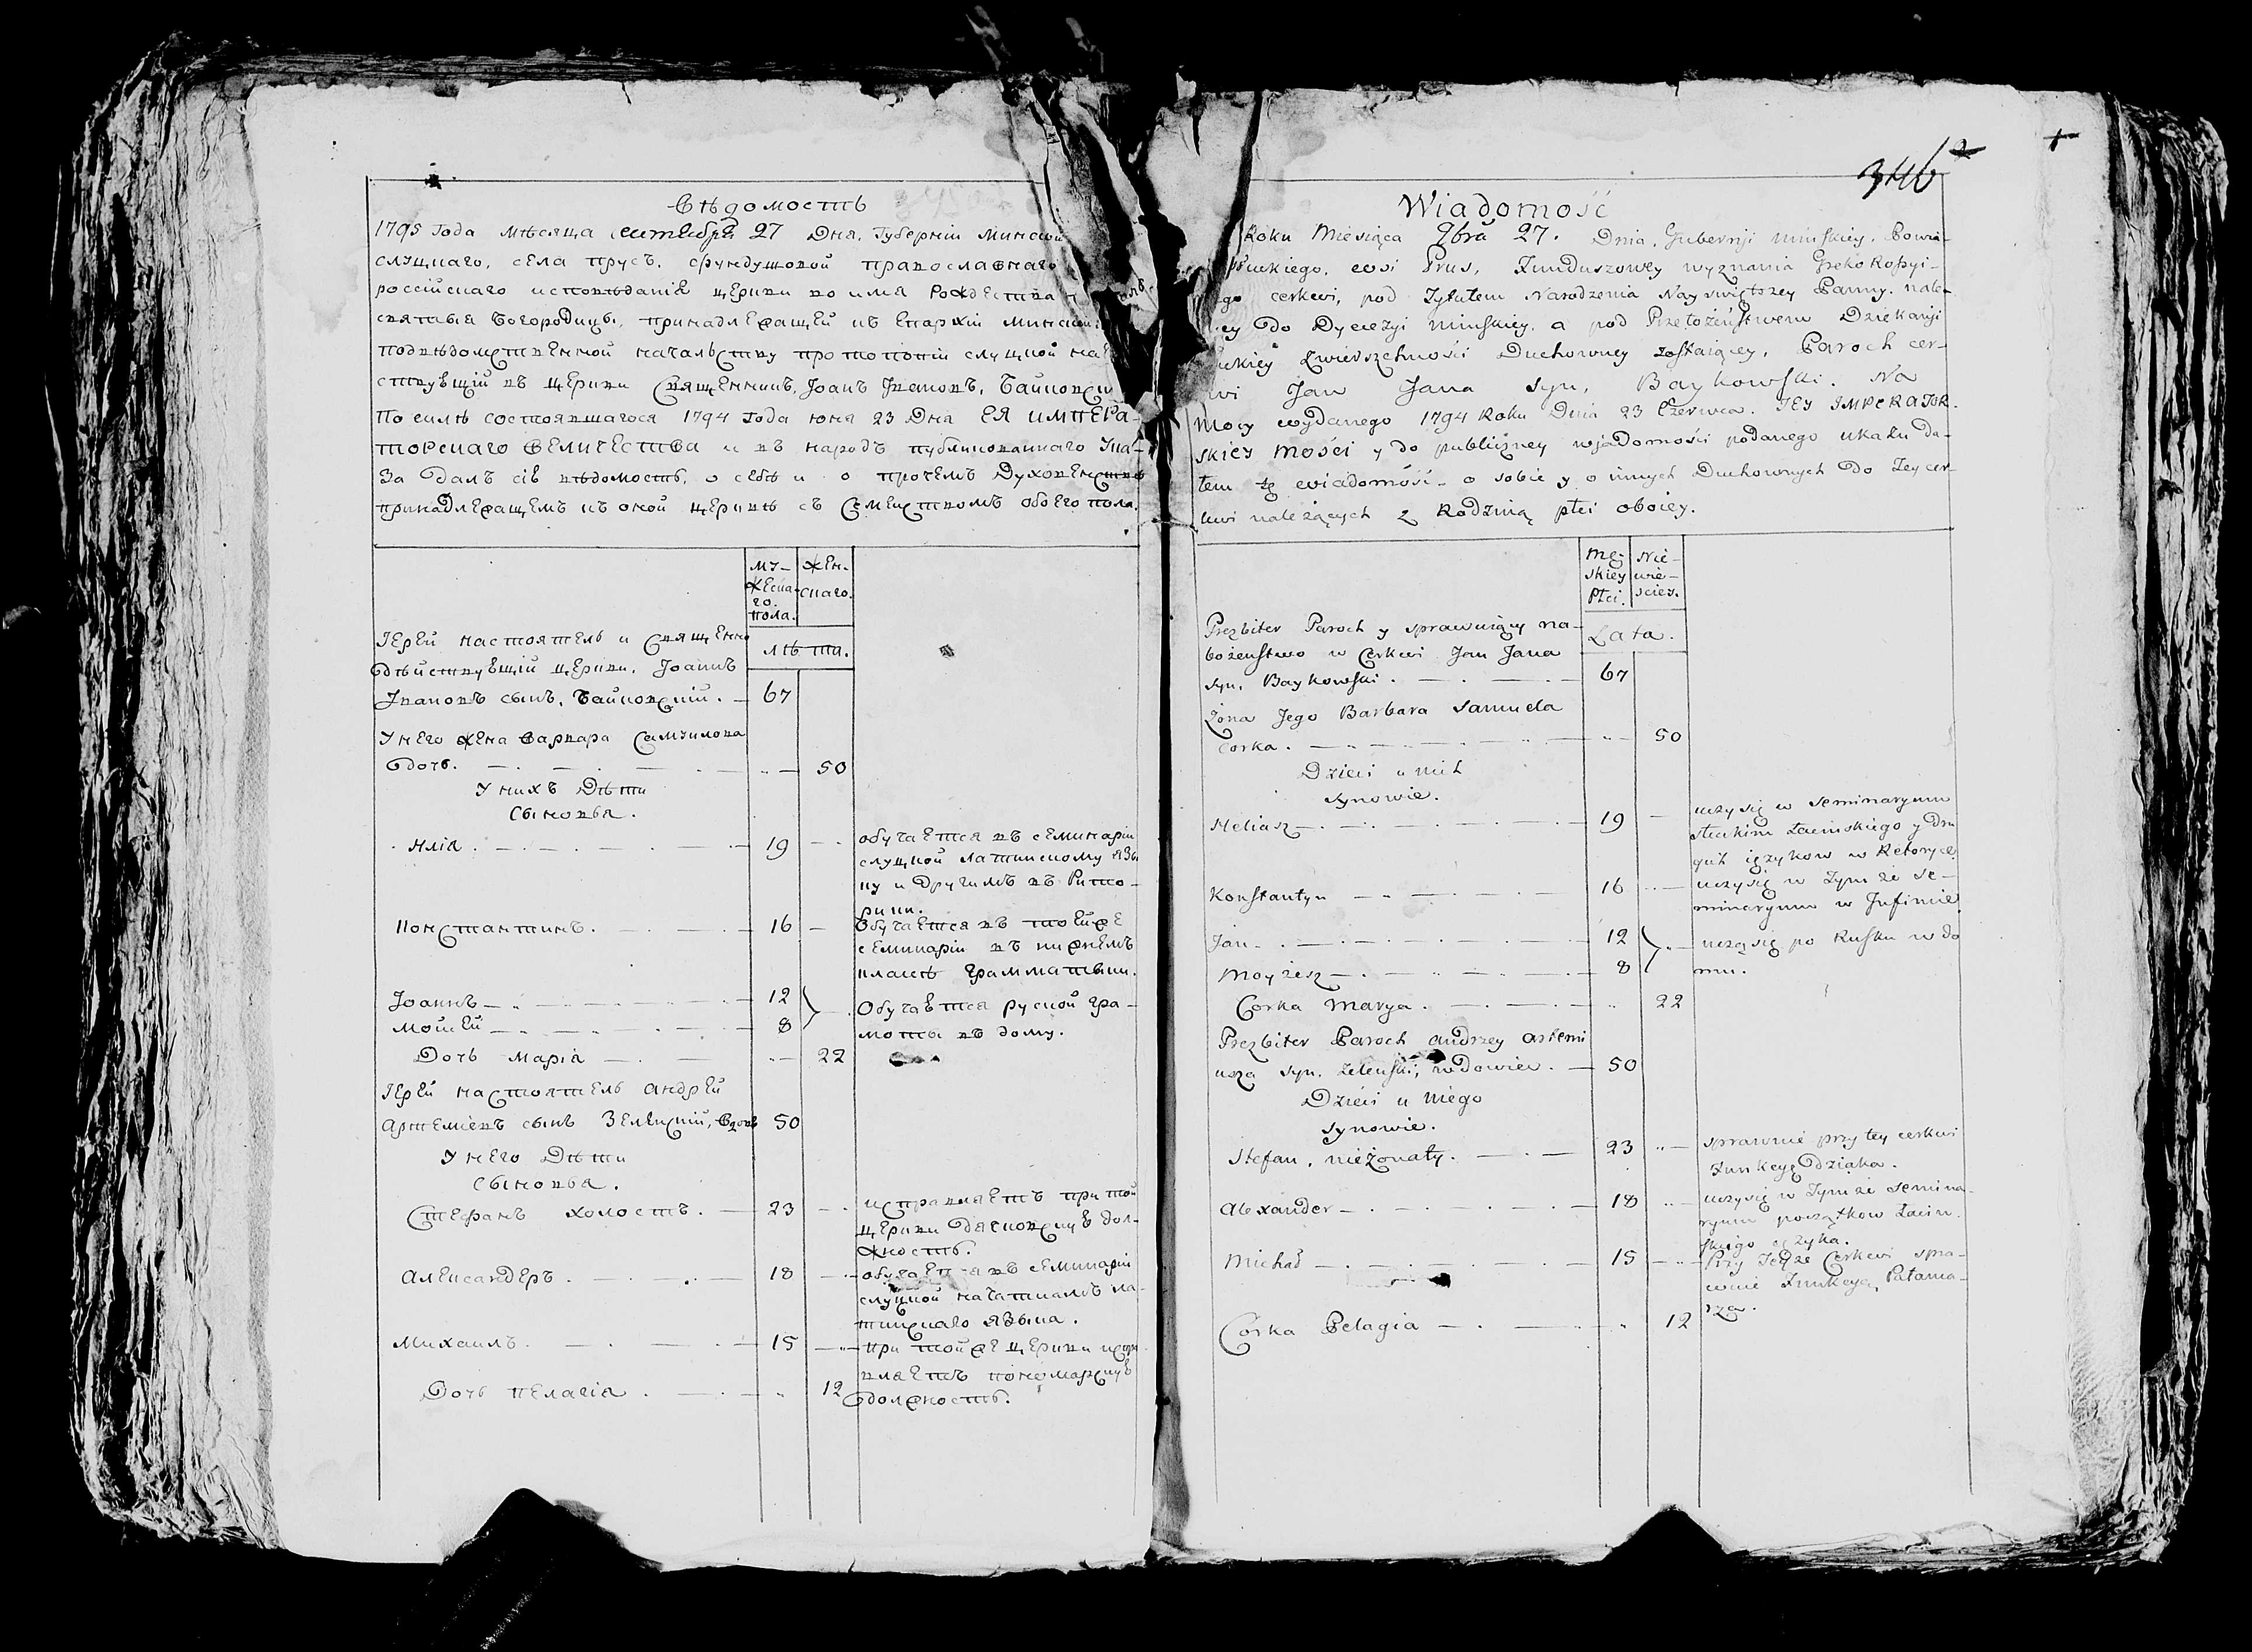 Вѣдомость
1795 года мѣсяца сентября 27 дня, Губерніи Минской
слуцкаго, села прусъ, фундушовой православнаго
россійскаго исповѣданія церкви во имя Рождества
святыя Богородицы, принадлежащей къ Епархіи Минской
подвѣдомственной начальству протопопіи слуцкой
ствующій въ церкви Священникъ, Іоанъ Івановъ, Байковскій
По силѣ состоявшагося 1794 года юня 23 дня ЕЯ ИМПЕРА-
ТОРСКАГО ВЕЛИЧЕСТВА и въ народъ публикованнаго Ука-
за далъ сію вѣдомость, о себѣ и о протчемъ духовенствѣ
принадлежащемъ къ оной церквѣ съ Семействомъ обоего пола.
му-
жеска-
го.
пола.
жен-
скаго.
лѣта.
Іерей настоятель и Священно
дѣйствующій церкви, Іоаннъ
Івановъ сынъ, Байковскій. 67
У него жена Варвара Самуилова
дочь. 50
У нихъ дѣти
Сыновья.
Илія. 19 обучается въ семинаріи
слуцкой латинскому язы
ку и другимъ въ Рито-
рики.
Константинъ. 16 Обучается въ тойже
семинаріи въ нижнемъ
класѣ грамматыки.
Іоаннъ 12 Обучаются руской гра-
Мойсей 8 моты въ дому.
Дочь Марія 22
Іерей настоятель Андрей
Артеміевъ сынъ Зеленскій, вдовъ 50
У него дѣти
Сыновья.
Стефанъ холостъ. 23 исправляетъ при той
церкви дяковскую дол-
жность.
Александеръ. 18 обучается въ семинаріи
слуцкой начаткамъ ла-
тинскаго языка.
Михаилъ. 15 при тойже церкви испра
вляетъ пономарскую
Дочь Пелагія. 12 должность.
346
Wiadomość
Roku Miesiąca 9bra 27. Dnia, Gubernji Minskiey, Powia-
słuckiego, wsi Prus, Funduszowey wyznania Greko Rossyi-
go cerkwi, pod Tytułem Narodzenia Nayswiętszey Panny, nale-
cey do Dyecezyi Minskiey, a pod Przełożeństwem Dziekanji
słuckiey Zwierzchności Duchowney zostaiącey, Paroch cer-
kwi Jan Jana syn, Baykowski. Na
Mocy wydanego 1794 Roku Dnia 23 Czerwca. JEY IMPERATOR-
SKIEY MOŚCI y do publiczney wjadomości podanego ukazu da-
łem tę wiadomość o sobie y o innych Duchownych do Tey cer-
kwi należących z Rodziną płci oboiey.
Mę-
skiey
Płci.
Nie-
wie-
sciey.
Lata.
Prezbiter Paroch y sprawuiący na-
bożenstwo w Cerkwi Jan Jana
syn, Baykowski. 67
Żona Jego Barbara Samuela
corka. 50
Dzieci u nich
synowie.
Heliasz 19 uczy się w Seminaryum
słuckim Łacinskiego y dru
gich ięzykow w Retoryce.
Konstantyn 16 uczy się w Tym że Se-
minaryum w Infimie.
Jan 12 uczą się po Rusku w do
Moyżesz 8 mu.
Corka Marya. 22
Prezbiter Paroch Andrzey Artemi
usza syn, Zelenski, wdowiec. 50
Dzieci u niego
synowie.
Stefan, nieżonaty. 23 sprawuie przy tey cerkwi
Funkcyę Dziaka.
Alexander 18 uczy się w Tym że Semina-
ryum początkow Łacin-
skiego ęzyka.
Michał 15 Przy Teyże Cerkwi spra-
wuie Funkcyą Patama-
rza.
Corka Pelagia 12